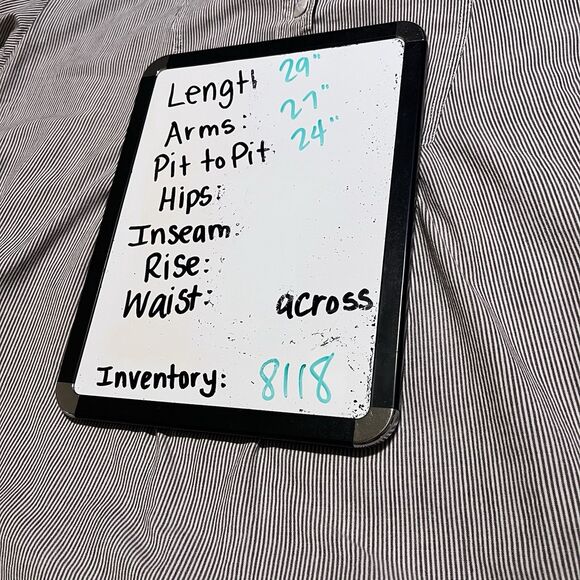 Length 29"
Arms: 27"
Pit to Pit 24"
Hips:
Inseam:
Rise:
Waist: across
Inventory: 8118